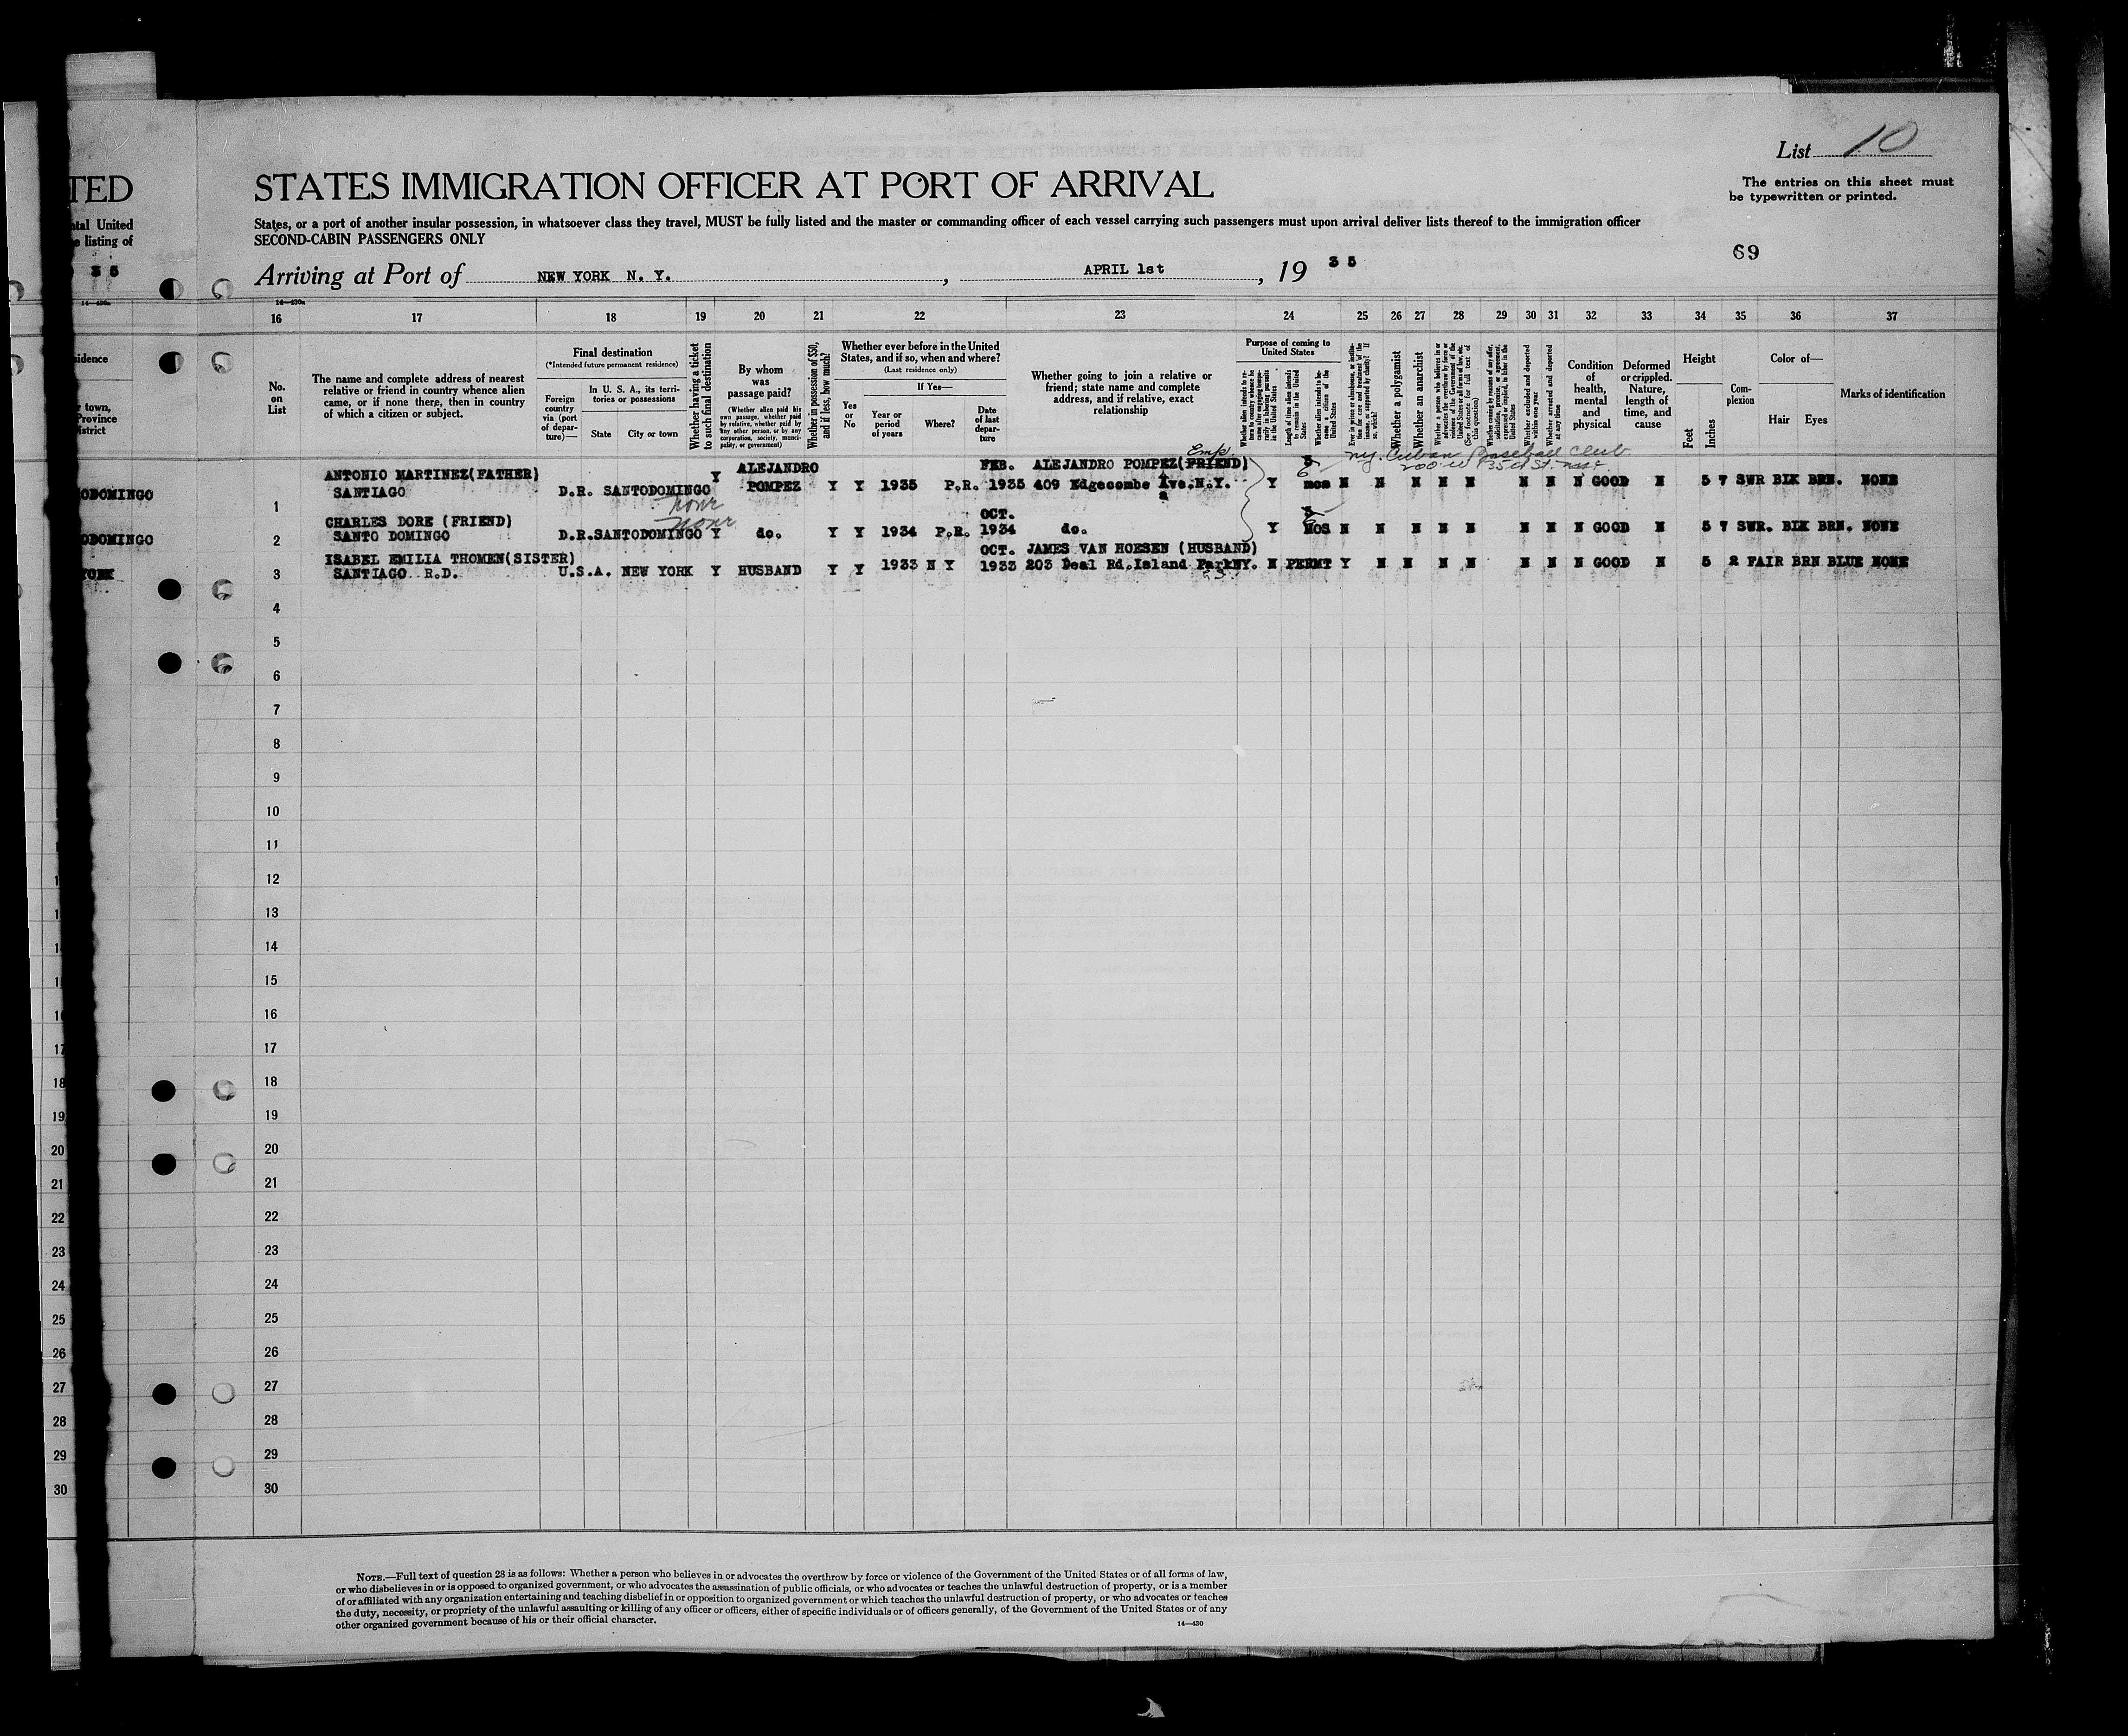 TED
ntal United
e listing of
3 5
14—430a
sidence
r town,
Province
istrict
ODOMINGO
ODOMINGO
YORK
List 10
The entries on this sheet must
be typewritten or printed.
69
STATES IMMIGRATION OFFICER AT PORT OF ARRIVAL
States, or a port of another insular possession, in whatsoever class they travel, MUST be fully listed and the master or commanding officer of each vessel carrying such passengers must upon arrival deliver lists thereof to the immigration officer
SECOND-CABIN PASSENGERS ONLY
Arriving at Port of NEW YORK N. Y. , APRIL 1st , 19 3 5
14—430a
16 17 18 19 20 21 22 23 24 25 26 27 28 29 30 31 32 33 34 35 36 37
No.
on
List
The name and complete address of nearest
relative or friend in country whence alien
came, or if none there, then in country
of which a citizen or subject.
Final destination
(*Intended future permanent residence)
Foreign
country
via (port
of depar-
ture)—
In U. S. A., its terri-
tories or possessions
State City or town
Whether having a ticket
to such final destination
By whom
was
passage paid?
(Whether alien paid his
own passage, whether paid
by relative, whether paid by
any other person, or by any
corporation, society, munici-
pality, or government)
Whether in possession of $50,
and if less, how much?
Whether ever before in the United
States, and if so, when and where?
(Last residence only)
Yes
or
No
If Yes—
Year or
period
of years
Where?
Date
of last
depar-
ture
Whether going to join a relative or
friend; state name and complete
address, and if relative, exact
relationship
Purpose of coming to
United States
Whether alien intends to re-
turn to country whence he
came after engaging tempo-
rarily in laboring pursuits
in the United States
Length of time alien intends
to remain in the United
States
Whether alien intends to be-
come a citizen of the
United States
Ever in prison or almshouse, or institu-
tion for care and treatment of the
insane, or supported by charity? If
so, which?
Whether a polygamist
Whether an anarchist
Whether a person who believes in or
advocates the overthrow by force or
violence of the Government of the
United States or all forms of law, etc.
(See footnote for full text of
this question)
Whether coming by reasons of any offer,
solicitation, promise, or agreement,
expressed or implied, to labor in the
United States
Whether excluded and deported
within one year
Whether arrested and deported
at any time
Condition
of
health,
mental
and
physical
Deformed
or crippled.
Nature,
length of
time, and
cause
Height
Feet Inches
Com-
plexion
Color of—
Hair Eyes
Marks of identification
Emp.
N.Y. Cuban Baseball Club
200 W 135th St.
1 ANTONIO MARTINEZ(FATHER)
SANTIAGO D.R. SANTODOMINGO Y ALEJANDRO
POMPEZ Y Y 1935 P.R. FEB.
1935 ALEJANDRO POMPEZ(FRIEND)
409 Edgecombe Ave.N.Y. Y 6 mos N N N N N N N N GOOD N 5 7 SWR BLK BRN. NONE
none
none
2 CHARLES DORE (FRIEND)
SANTO DOMINGO D.R.SANTODOMINGO Y do. Y Y 1934 P.R. OCT.
1934 do. Y MOS N N N N N N N N GOOD N 5 7 SWR. BLK BRN. NONE
3 ISABEL EMILIA THOMEN(SISTER)
SANTIAGO R.D. U.S.A. NEW YORK Y HUSBAND Y Y 1933 N Y OCT.
1933 JAMES VAN HOESEN (HUSBAND)
203 Deal Rd.Island ParkNY. N PERMT Y N N N N N N N GOOD N 5 2 FAIR BRN BLUE NONE
4
5
6
7
8
9
10
11
12
13
14
15
16
17
18 18
19 19
20 20
21 21
22 22
23 23
24 24
25 25
26 26
27 27
28 28
29 29
30 30
NOTE.—Full text of question 28 is as follows: Whether a person who believes in or advocates the overthrow by force or violence of the Government of the United States or of all forms of law,
or who disbelieves in or is opposed to organized government, or who advocates the assassination of public officials, or who advocates or teaches the unlawful destruction of property, or is a member
of or affiliated with any organization entertaining and teaching disbelief in or opposition to organized government or which teaches the unlawful destruction of property, or who advocates or teaches
the duty, necessity, or propriety of the unlawful assaulting or killing of any officer or officers, either of specific individuals or of officers generally, of the Government of the United States or of any
other organized government because of his or their official character.
14—430